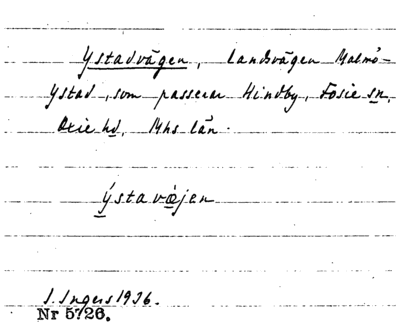 Ystadvägen, landsvägen Malmö-
Ystad, som passerar Hindby, Fosie sn,
Oxie hd, Mhs län.
ýsta væ̀jen
I. Ingers 1936.
Nr 5726.